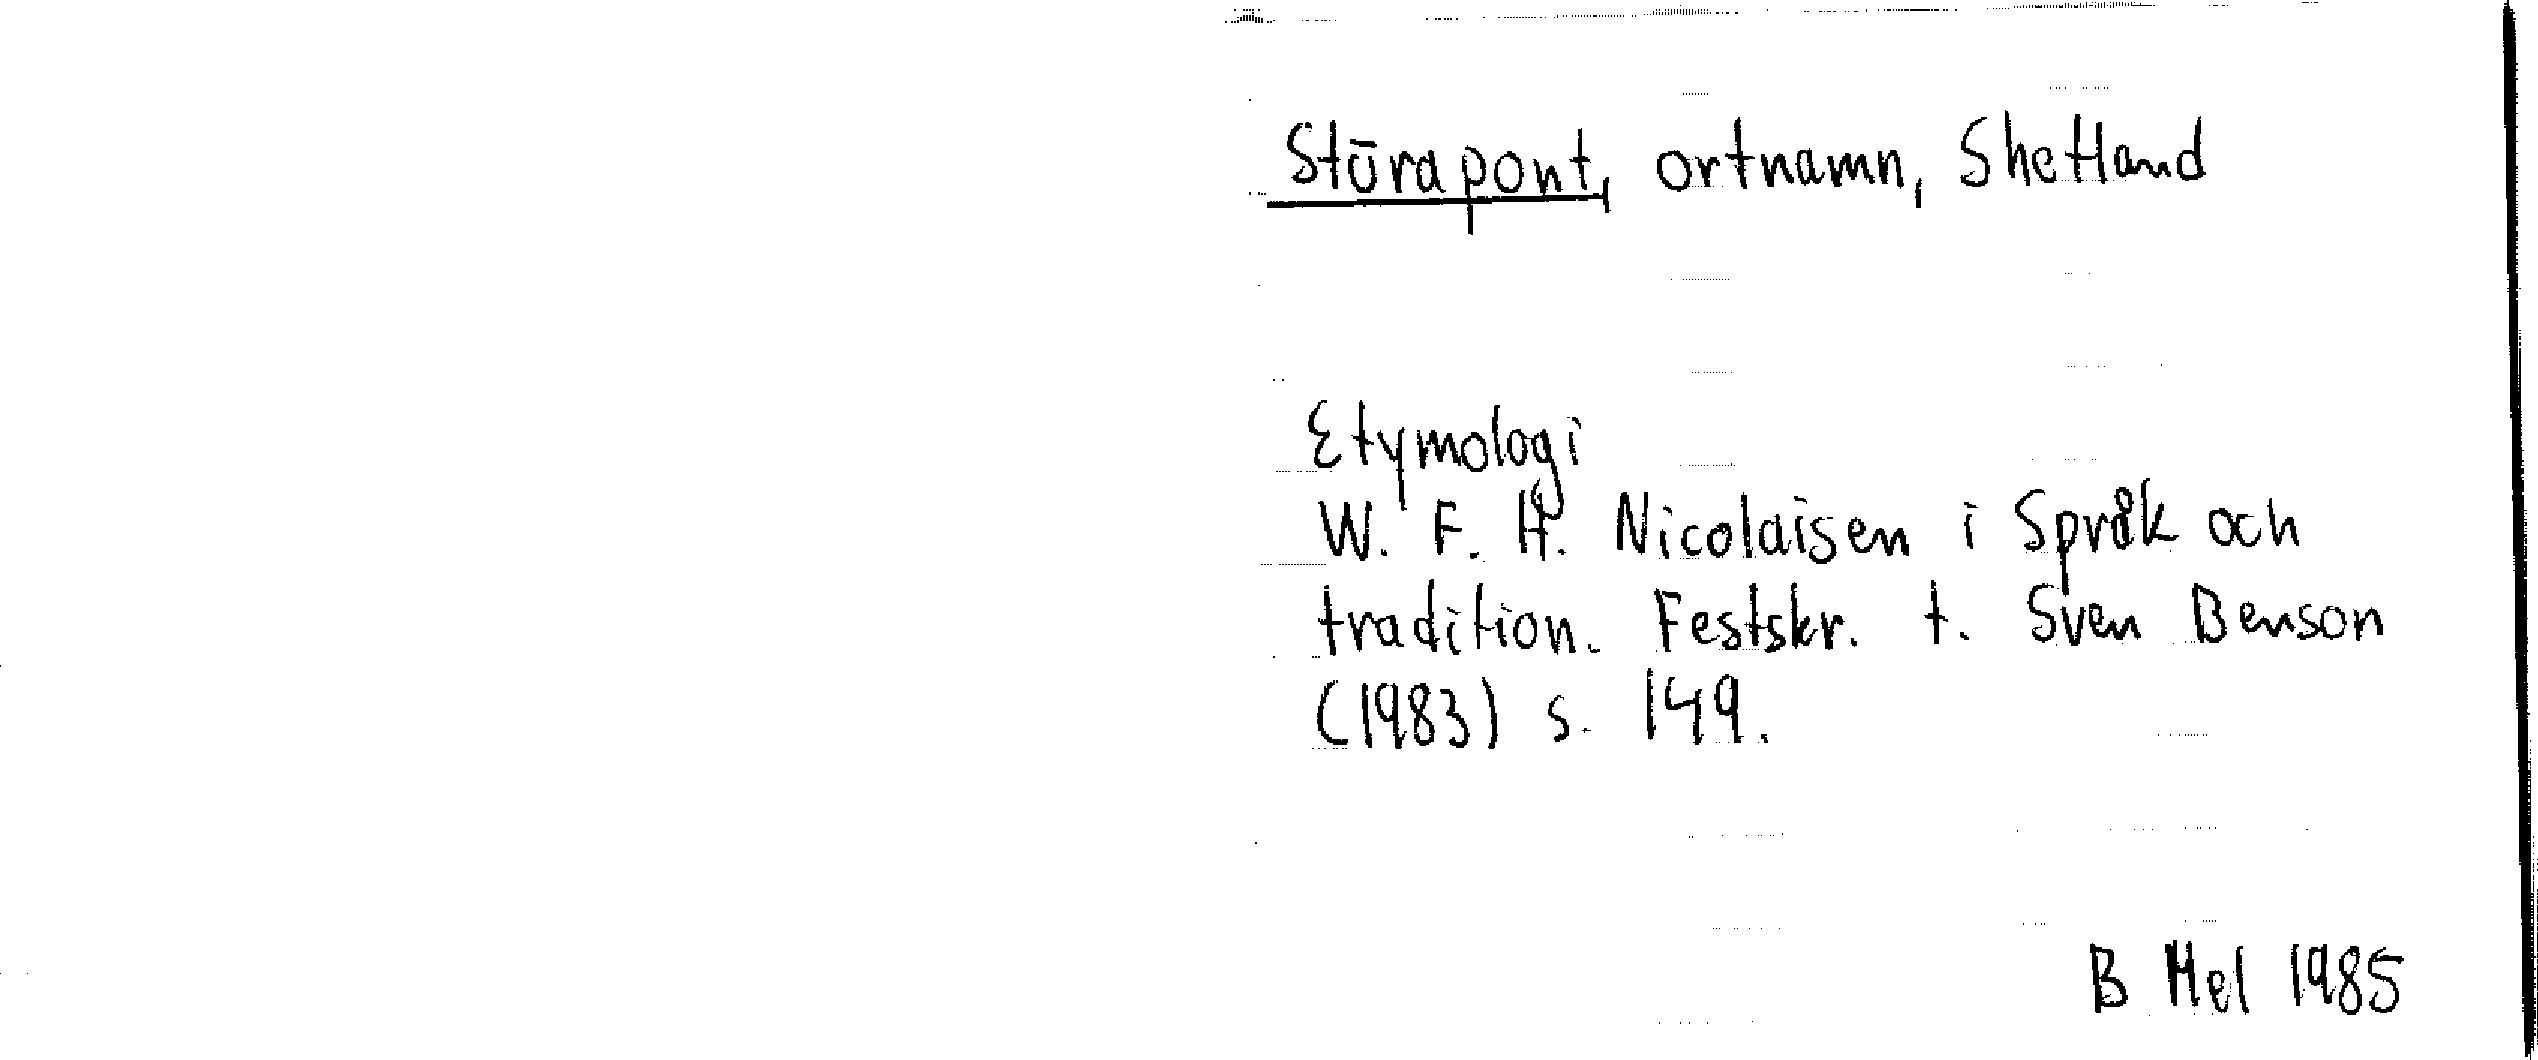 Stūrapont, ortnamn, Shetland
Etymologi
W. F. H. Nicolaisen i Språk och
tradition. Festskr. t. Sven Benson
(1983) s. 149.
B Mel 1985